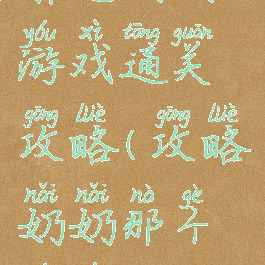 yóu xì tōng guān
游戏通关
gōng lüè gōng lüè
攻略(攻略
nǎi nǎi nò gè
奶奶那个